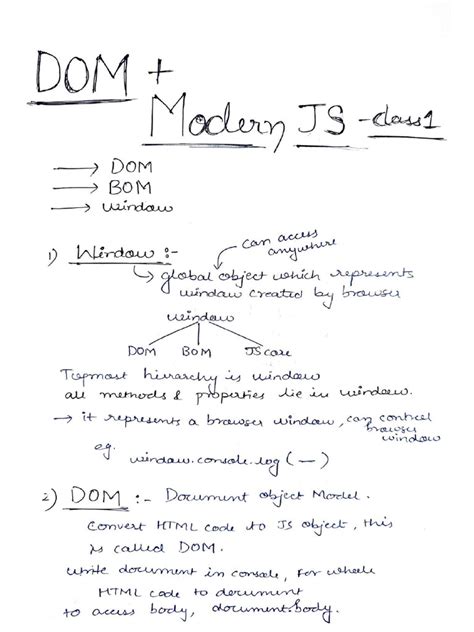 DOM +
Modern JS - class1
→ DOM
→ BOM
→ window
1) Window :-
can access
anywhere
↳ global object which represents
window created by browser
window
DOM BOM JS core
Topmost hierarchy is window
all methods & properties lie in window.
→ it represents a browser window, can control
browser
window
eg.
window.console.log ( — )
2) DOM :- Document Object Model.
Convert HTML code to JS object, this
is called DOM.
write document in console, for whole
HTML code to document
to access body, document.body.